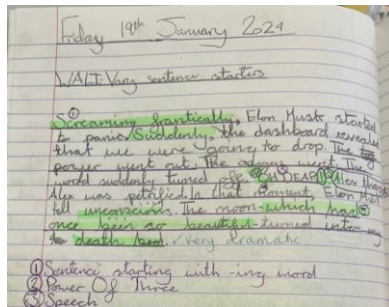 Friday 19th January 2024
WALT: Vary sentence starters
①
Screaming frantically, Elon Musk started
to panic. Suddenly, the dashboard revealed
that we were going to drop. The
power went out. The went. The
word suddenly turned off.
Alex was petrified. In that moment, Elon Musk
fell unconscious. The moon which had
once been so beautiful turned into my
death bed. Very dramatic
① Sentence starting with -ing word
② Power Of Three
③ Speech